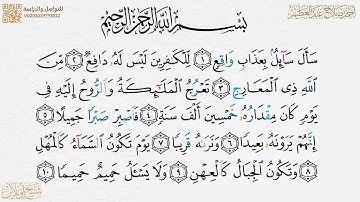 للتواصل والدراسة
00201019793512
بِسْمِ اللَّهِ الرَّحْمَٰنِ الرَّحِيمِ
سَأَلَ سَآئِلٌۢ بِعَذَابٍ وَاقِعٍ ١ لِّلْكَٰفِرِينَ لَيْسَ لَهُۥ دَافِعٌ ٢ مِّنَ
ٱللَّهِ ذِى ٱلْمَعَارِجِ ٣ تَعْرُجُ ٱلْمَلَٰٓئِكَةُ وَٱلرُّوحُ إِلَيْهِ فِى
يَوْمٍ كَانَ مِقْدَارُهُۥ خَمْسِينَ أَلْفَ سَنَةٍ ٤ فَٱصْبِرْ صَبْرًا جَمِيلًا ٥
إِنَّهُمْ يَرَوْنَهُۥ بَعِيدًا ٦ وَنَرَىٰهُ قَرِيبًا ٧ يَوْمَ تَكُونُ ٱلسَّمَآءُ كَٱلْمُهْلِ
٨ وَتَكُونُ ٱلْجِبَالُ كَٱلْعِهْنِ ٩ وَلَا يَسْـَٔلُ حَمِيمٌ حَمِيمًا ١٠